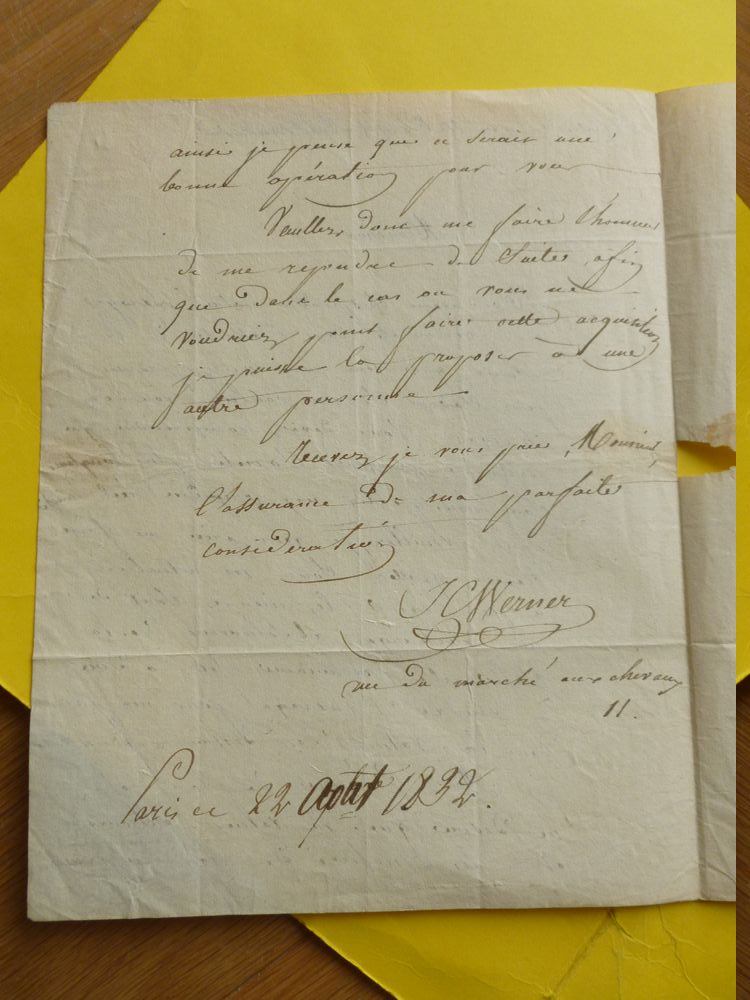 ainsi je pense que ce serait une
bonne opération pour vous
Veuillez donc me faire l'honneur
de me repondre de suite, afin
que dans le cas ou vous ne
voudriez point faire cette acquisition
je puisse la proposer à une
autre personne
Recevez je vous prie, Monsieur,
l'assurance de ma parfaite
consideration
JC Werner
rue du marché aux chevaux
11.
Paris ce 22 Août 1832.